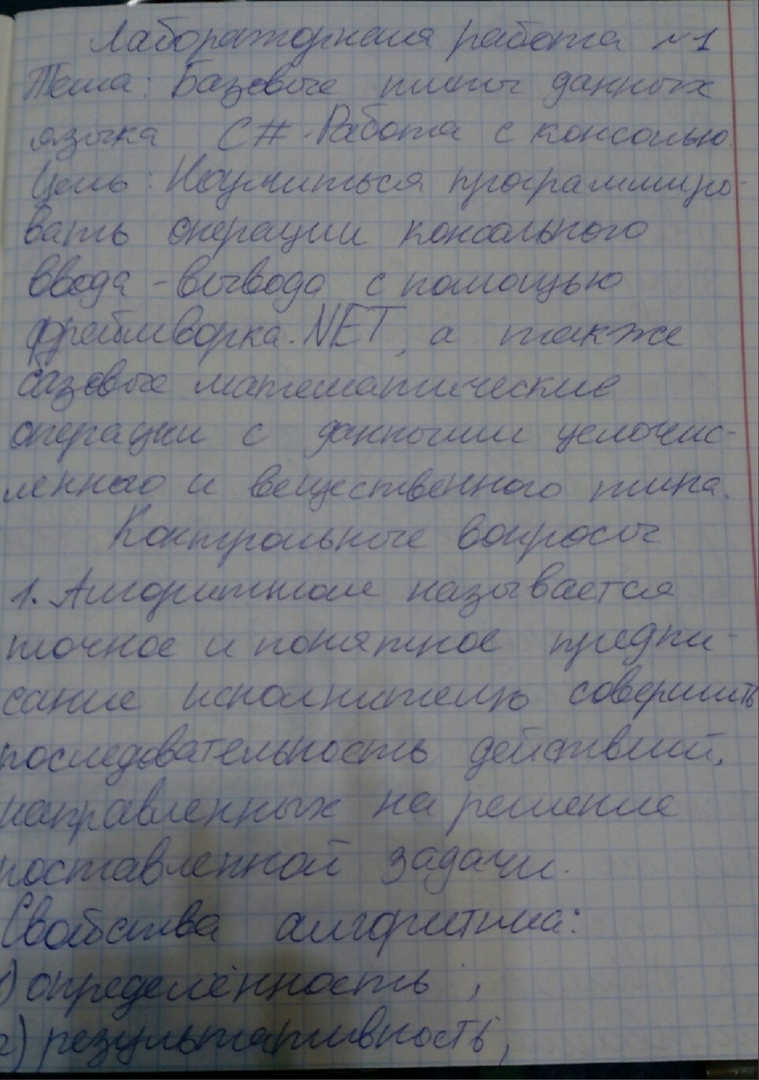 Лабораторная работа №1
Тема: Базовые типы данных
языка C#. Работа с консолью.
Цель: Научиться программиро-
вать операции консольного
ввода-вывода с помощью
фреймворка .NET, а также
базовые математические
операции с данными целочис-
ленного и вещественного типа.
Контрольные вопросы
1. Алгоритмом называется
точное и понятное предпи-
сание исполнителю совершить
последовательность действий,
направленных на решение
поставленной задачи.
Свойства алгоритма:
) определённость,
2) результативность,